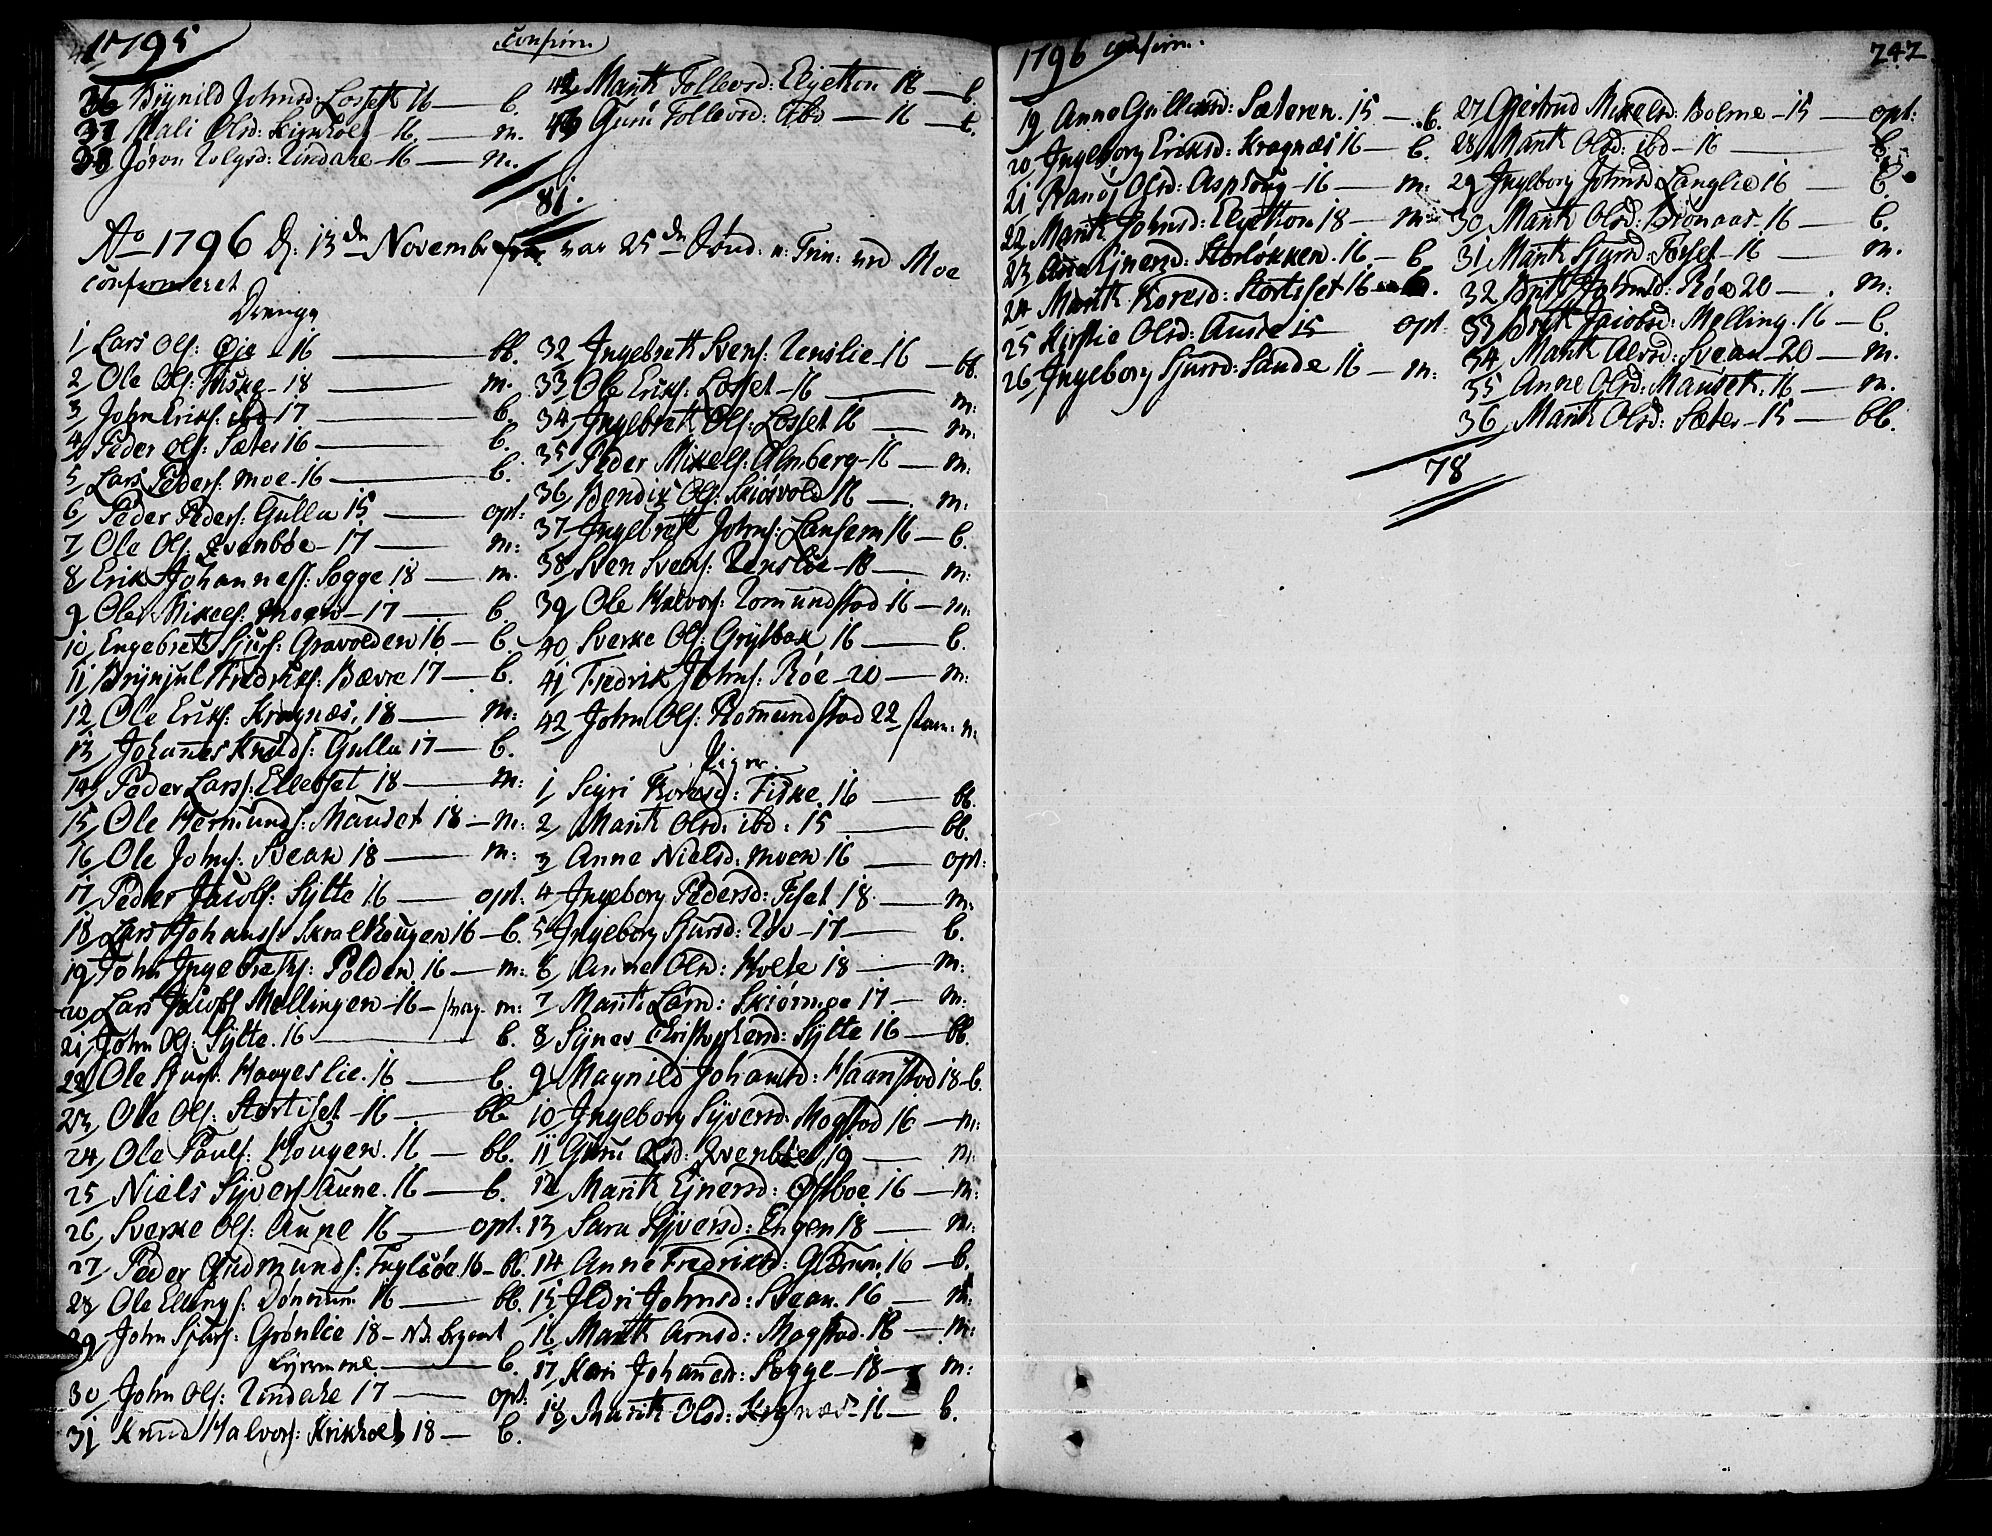 1795
confirm.
36 Brÿnild Johnsd: Losset 16 — b.
37 Mali Olsd: 16 — m.
38 Jøron Rindahe 16 — m.
42 Marit Tollevsd: Elgetton 18 — b.
43 Gurü Tollevsd: ibd — 16 — b.
81.
Ao 1796 D: 13de November var 25de Sønd: n: Trin: ved Moe
confirmeret
Drenge
1 Lars Ols: Øje — 16 — bb.
2 Ole Ols: Fiske — 18 — m.
3 John Eriks: ibd 17 — b.
4 Peder Ols: Sæter 16 — b.
5 Lars Peders: Moe — 16 — b.
6 Peder Peders: Gulla 15 — opt:
7 Ole Ols: Qvenbøe — 17 — m:
8 Erik Johanness: Sogge 18 — m.
9 Ole Mikels: Moen — 17 — b
10 Engebret Sjurs: Gravolden 16 — b.
11 Brÿnjul Fredriks: Bævre 17 — b.
12 Ole Eriks: Kragnæs, 18 — m:
13 Johanes Knuds: Gulla 17 — b.
14 Peder Larss: Ellevset 18 — m:
15 Ole Hermunds: Mauset 18 — m:
16 Ole Johns: Svean 18 — m:
17 Peder Jacobs: Sÿlte 16 — opt:
18 Lars Johans: 16 — b.
19 John Ingebrets: Polden 16 — m:
20 Lars Jacobs Mellingen — 16 — m:
21 John Ols: Sÿlte. 16 — b.
22 Ole Haugeslie. 16 — b.
23 Ole Ols: Stortiset — 16 — bb
24 Ole Pouls: Hougen. 16 — bb.
25 Niels Sÿvers Aune. 16 — b.
26 Sverke Ols: Aune 16 — opt:
27 Peder Gudmunds: 16 — bb.
28 Ole Ellings: Dønnum 16 — bb.
29 John Sjurs: Grønlie 18 —
b.
30 John Ols: Rindahe 17 — opt:
31 Knud Halvors: 18 — b.
32 Ingebrett Svens: Renslie — 16 — bb.
33 Ole Eriks: Losset — 16 — m:
34 Ingebrett Ols: Losset 16 — m:
35 Peder Mikels: Almberg — 16 — m:
36 Bendix Ols: Skiørvold 16 — m:
37 Ingebrett Johns: Lansem 16 — b.
38 Sven Svens: Renslie — 18 — m:
39 Ole Halvors: Romundstad 16 — m:
40 Sverke Ols: Grÿtbak 16 — b.
41 Fredrik Johns: Røe — 20 — m:
42 John Ols: Romundstad 22
Piger
1 Sigri Toresd: Fiske. 16 — bb.
2 Marit Olsd: ibd: 15 — bb.
3 Anne Nielsd: Moen 16 — opt:
4 Ingeborg Pedersd: 18 — m.
5 Ingeborg Sjursd: — 17 — b.
6 Anne Olsd: Holte 18 — m:
7 Marit Larsd: Skiørmoe 17 — m.
8 Sÿnev Christophersd: Sÿlte 16 — bb.
9 Magnild Johansd: Haanstad 18 — b.
10 Ingeborg Sÿversd: Mogstad 16 — m:
11 Gurü Olsd: Qvenbøe, 19 — m:
12 Marit Ejnersd: Østboe 16 — m:
13 Sara Sÿversd: Engen 18 — m:
14 Anne Fredriksd: Glærum. 16 — b.
15 Ildri Johnsd: Svean. 16 — m:
16 Marit Arnsd: Mogstad. 18 — m:
17 Kari Johansd: Sogge — 18 — m:
18 Marit Olsd: Kragnæs — 16 — b.
1796 confirm.
747
19 Anne Gulliksd: Sæteren. 15 — b.
20 Ingeborg Eriksd: Kragnæs 16 — b.
21 Randi Olsd: Aspøug — 16 — m:
22 Marit Johnsd: Elgetton 18 — m:
23 Ane Ejnersd: Storløkken. 16 — b
24 Marit Toresd: Stortiset 16 — b.
25 Kirstie Olsd: Aune 15 opt
26 Ingeborg Sjursd: Sande 16 — m:
27 Giertrud Mikelsd: Bolme — 15 — opt:
28 Marit Olsd: ibd — 16 — b.
29 Ingeborg Johnsd Langlie 16 — b.
30 Marit Olsd: Brønaas — 16 — b.
31 Marit Sjursd: Fosset — 16 — m.
32 Brit Johnsd: Røe 20 — m:
33 Brit Jacobsd: Melling. 16 — b.
34 Marit Alvsd: Svean — 20 — m.
35 Anne Olsd: Mauset. 16 — m.
36 Marit Olsd: Sæter — 15 — bb.
78